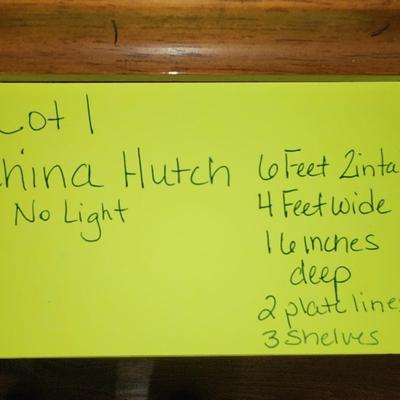 Lot 1
China Hutch
No Light
6 Feet 2inta
4 Feet wide
16 inches
deep
2 plate lines
3 Shelves